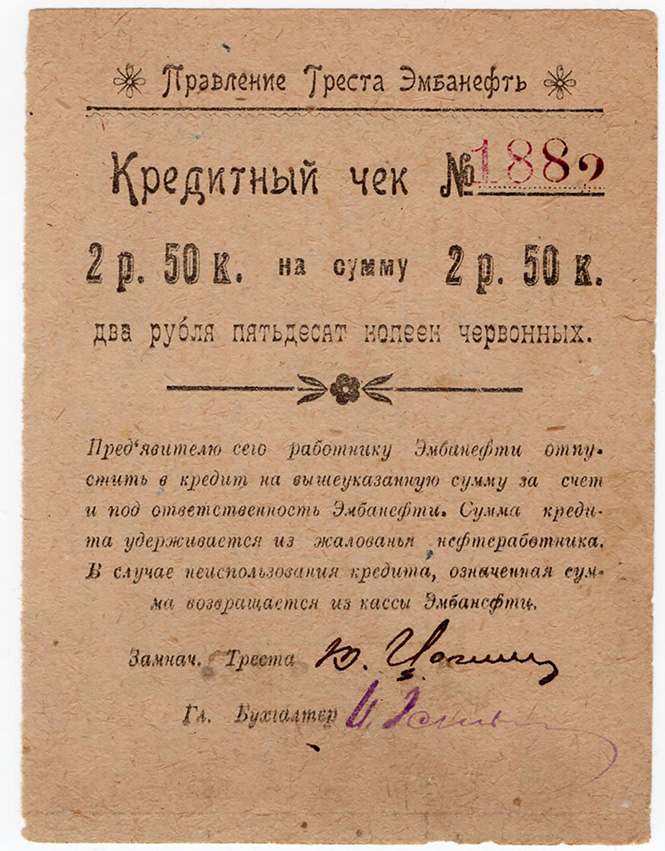 Правление Треста Эмбанефть
Кредитный чек № 1882
2 р. 50 к. на сумму 2 р. 50 к.
два рубля пятьдесят копеек червонных.
Пред‘явителю сего работнику Эмбанефти отпу-
стить в кредит на вышеуказанную сумму за счет
и под ответственность Эмбанефти. Сумма креди-
та удерживается из жалованья нефтеработника.
В случае неиспользования кредита, означенная сум-
ма возвращается из кассы Эмбанефти.
Замнач. Треста
Гл. Бухгалтер